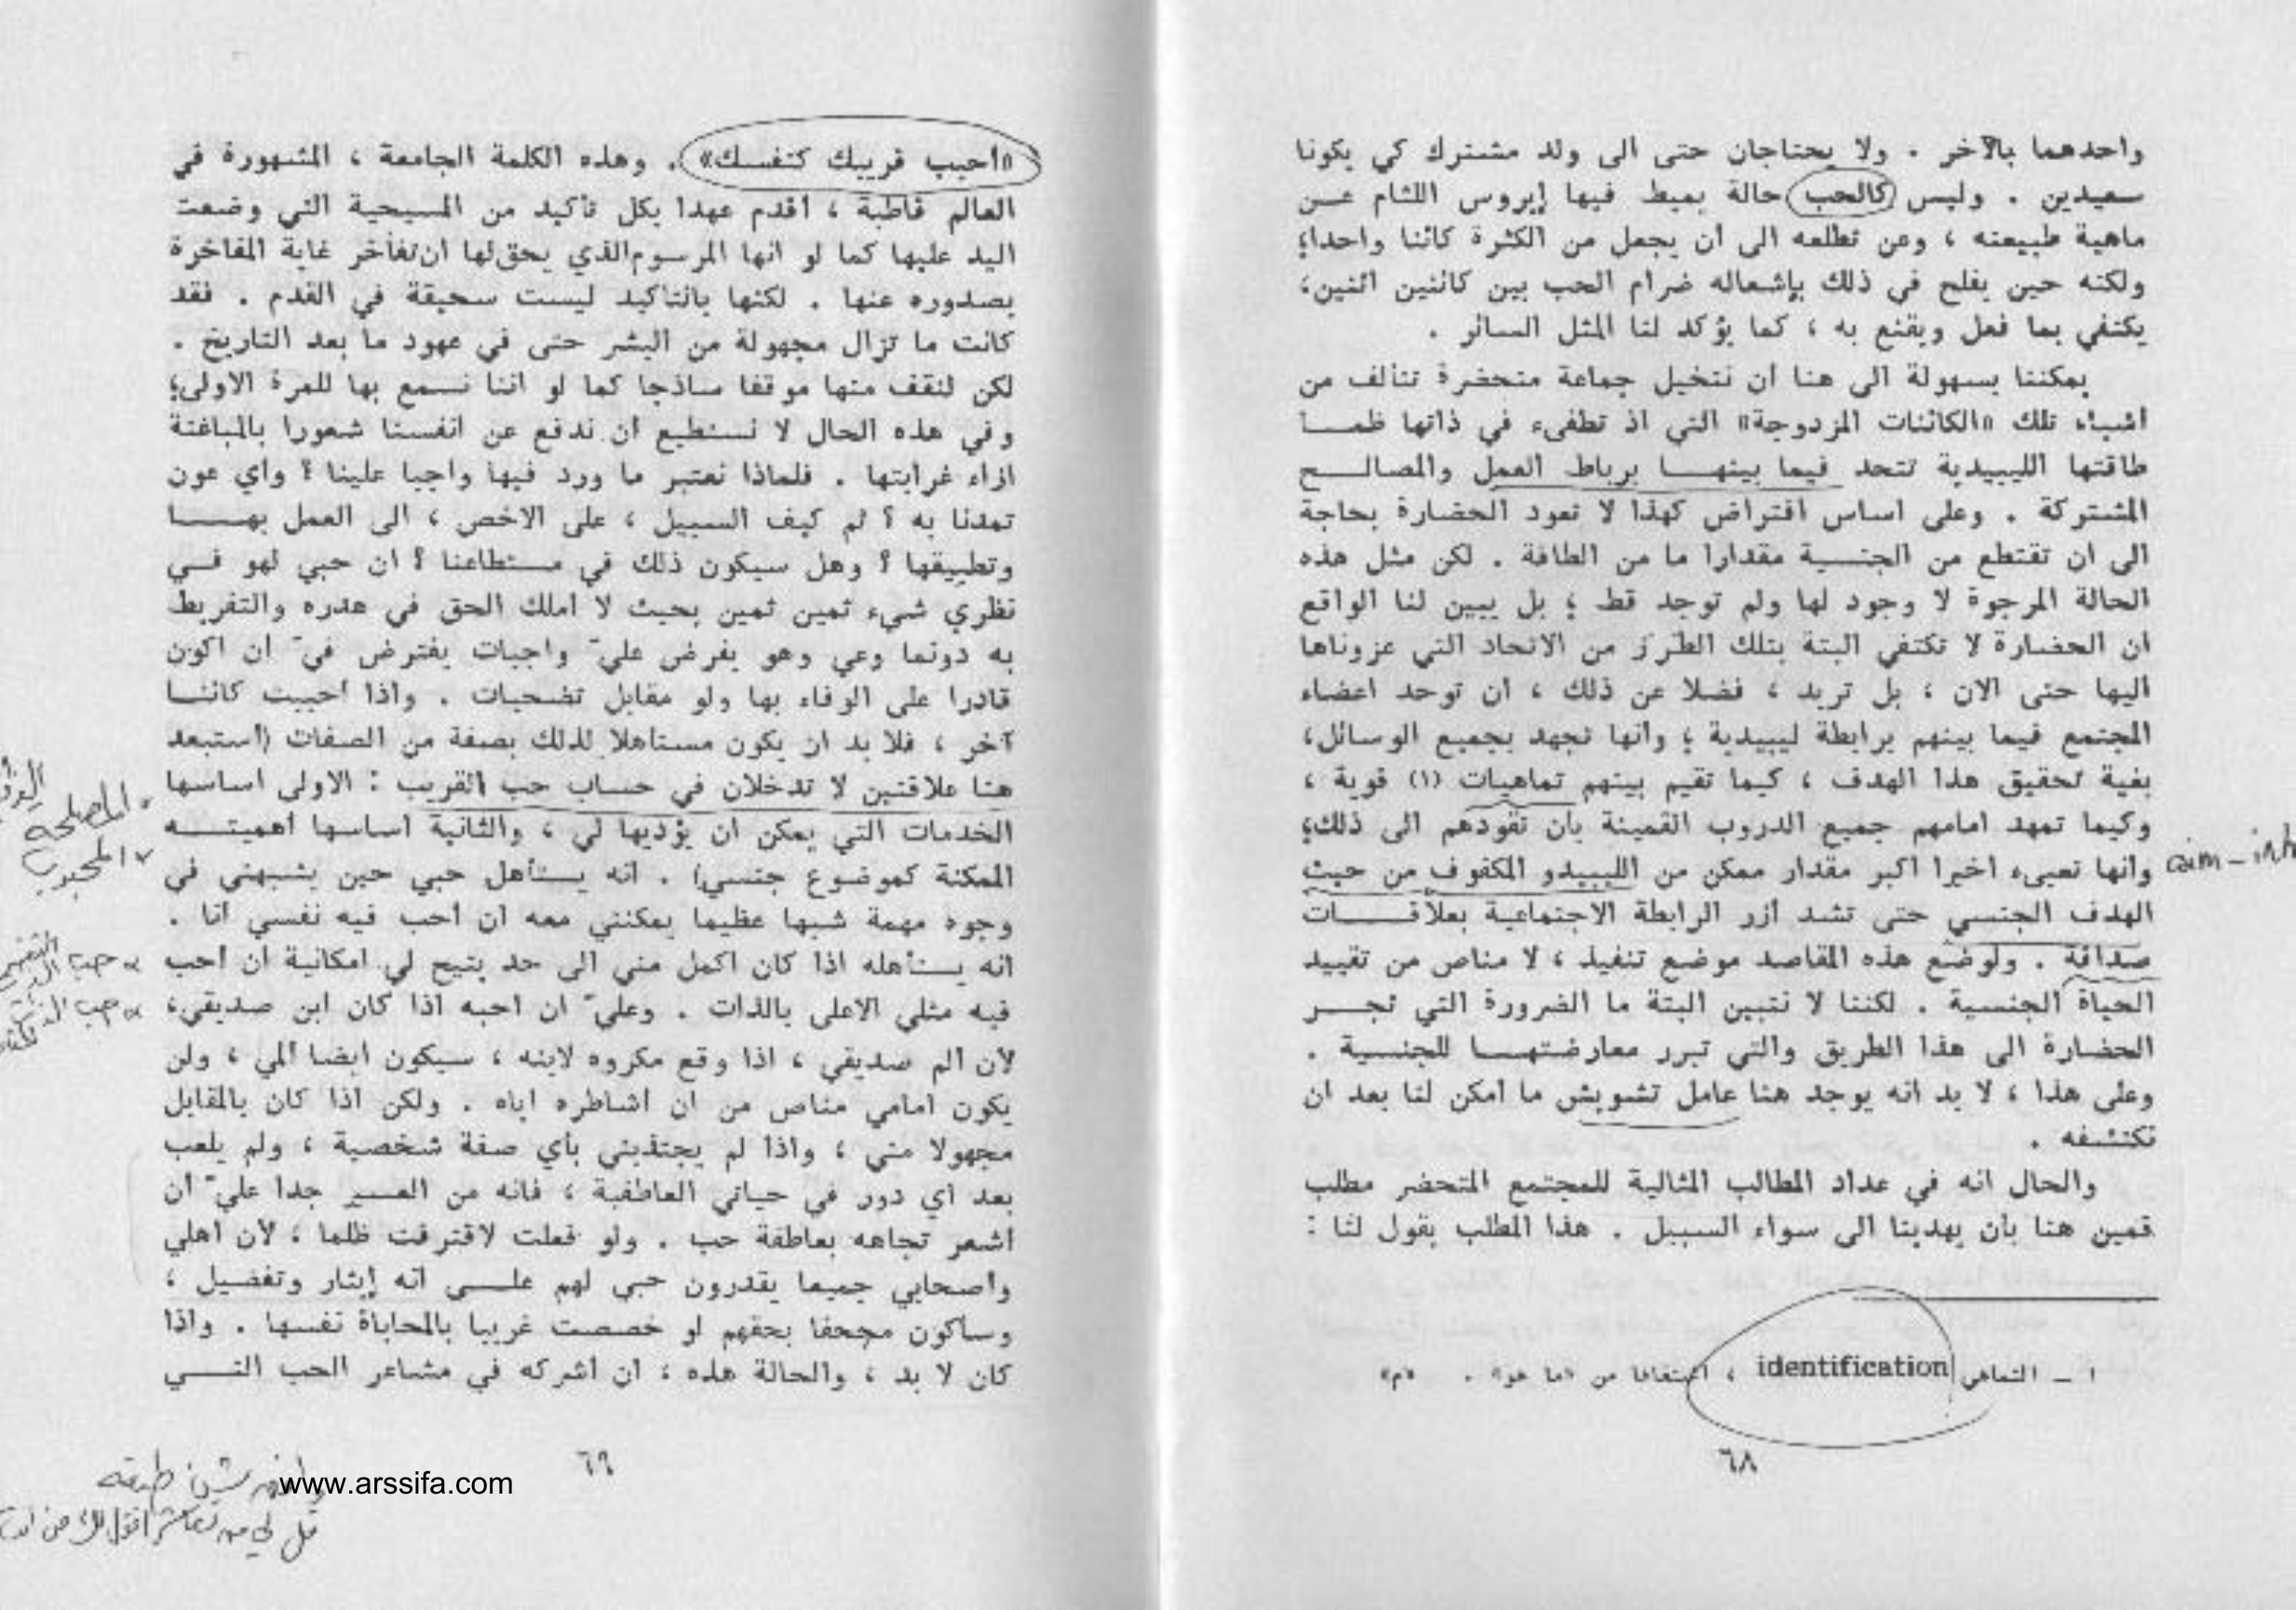 واحدهما بالآخر . ولا يحتاجان حتى الى ولد مشترك كي يكونا
سعيدين . وليس كالحب حالة يميط فيها إيروس اللثام عـن
ماهية طبيعته ، وعن تطلعه الى أن يجعل من الكثرة كائنا واحدا؛
ولكنه حين يفلح في ذلك بإشعاله ضرام الحب بين كائنين اثنين،
يكتفي بما فعل ويقنع به ، كما يؤكد لنا المثل السائر .
يمكننا بسهولة الى هنا أن نتخيل جماعة متحضرة تتألف من
أشباه تلك «الكائنات المزدوجة» التي اذ تطفىء في ذاتها ظمـــأ
طاقتها الليبيدية تتحد فيما بينهـــا برباط العمل والمصالـــح
المشتركة . وعلى اساس افتراض كهذا لا تعود الحضارة بحاجة
الى ان تقتطع من الجنسية مقدارا ما من الطاقة . لكن مثل هذه
الحالة المرجوة لا وجود لها ولم توجد قط ؛ بل يبين لنا الواقع
ان الحضارة لا تكتفي البتة بتلك الطرز من الاتحاد التي عزوناها
اليها حتى الان ، بل تريد ، فضلا عن ذلك ، ان توحد اعضاء
المجتمع فيما بينهم برابطة ليبيدية ؛ وانها تجهد بجميع الوسائل،
بغية تحقيق هذا الهدف ، كيما تقيم بينهم تماهيات (١) قوية ،
وكيما تمهد امامهم جميع الدروب القمينة بأن تقودهم الى ذلك؛
وانها تعبىء اخيرا اكبر مقدار ممكن من الليبيدو المكفوف من حيث
الهدف الجنسي حتى تشد أزر الرابطة الاجتماعية بعلاقــــات
صداقة . ولوضع هذه المقاصد موضع تنفيذ ، لا مناص من تقييد
الحياة الجنسية . لكننا لا نتبين البتة ما الضرورة التي تجـــر
الحضارة الى هذا الطريق والتي تبرر معارضتهـــا للجنسية .
وعلى هذا ، لا بد انه يوجد هنا عامل تشويش ما امكن لنا بعد ان
نكتشفه .
والحال انه في عداد المطالب المثالية للمجتمع المتحضر مطلب
قمين هنا بأن يهدينا الى سواء السبيل . هذا المطلب يقول لنا :
١ ــ التماهي identification ، اشتقاقا من «ما هو» . «م»
٦٨
aim-inh
«أحبب قريبك كنفسك» . وهذه الكلمة الجامعة ، المشهورة في
العالم قاطبة ، أقدم عهدا بكل تأكيد من المسيحية التي وضعت
اليد عليها كما لو انها المرسوم الذي يحق لها ان تفاخر غاية المفاخرة
بصدوره عنها . لكنها بالتأكيد ليست سحيقة في القدم . فقد
كانت ما تزال مجهولة من البشر حتى في عهود ما بعد التاريخ .
لكن لنقف منها موقفا ساذجا كما لو اننا نسمع بها للمرة الاولى؛
وفي هذه الحال لا نستطيع ان ندفع عن انفسنا شعورا بالمباغتة
ازاء غرابتها . فلماذا نعتبر ما ورد فيها واجبا علينا ؟ وأي عون
تمدنا به ؟ ثم كيف السبيل ، على الاخص ، الى العمل بهـــا
وتطبيقها ؟ وهل سيكون ذلك في مستطاعنا ؟ ان حبي لهو فـي
نظري شيء ثمين ثمين بحيث لا املك الحق في هدره والتفريط
به دونما وعي وهو يفرض عليّ واجبات يفترض فيّ ان اكون
قادرا على الوفاء بها ولو مقابل تضحيات . واذا احببت كائنـا
آخر ، فلا بد ان يكون مستاهلا لذلك بصفة من الصفات (أستبعد
هنا علاقتين لا تدخلان في حساب حب القريب : الاولى اساسها
الخدمات التي يمكن ان يؤديها لي ، والثانية اساسها اهميتـــه
الممكنة كموضوع جنسي) . انه يستأهل حبي حين يشبهني في
وجوه مهمة شبها عظيما يمكنني معه ان احب فيه نفسي انا .
انه يستأهله اذا كان اكمل مني الى حد يتيح لي امكانية ان احب
فيه مثلي الاعلى بالذات . وعليّ ان احبه اذا كان ابن صديقي،
لان الم صديقي ، اذا وقع مكروه لابنه ، سيكون ايضا ألمي ، ولن
يكون امامي مناص من ان اشاطره اياه . ولكن اذا كان بالمقابل
مجهولا مني ، واذا لم يجتذبني بأي صفة شخصية ، ولم يلعب
بعد أي دور في حياتي العاطفية ، فانه من العسير جدا عليّ ان
اشعر تجاهه بعاطفة حب . ولو فعلت لاقترفت ظلما ، لان اهلي
واصحابي جميعا يقدرون حبي لهم علـــى انه إيثار وتفضيل ،
وساكون مجحفا بحقهم لو خصصت غريبا بالمحاباة نفسها . واذا
كان لا بد ، والحالة هذه ، ان أشركه في مشاعر الحب التـــي
٦٩
المصلحة
المحبوب
حب
حب
طبقه
قل لي من تعاشر اقول لك من انت
www.arssifa.com